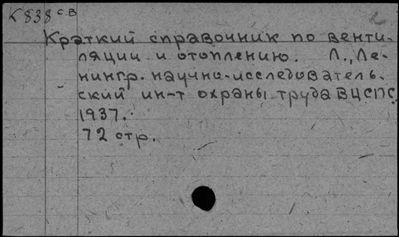 К 838 св
2
Краткий справочник по венти-
ляции и отоплению. Л., Ле-
нингр. научно-исследователь-
ский ин-т охраны труда ВЦСПС,
1937.
72 стр.